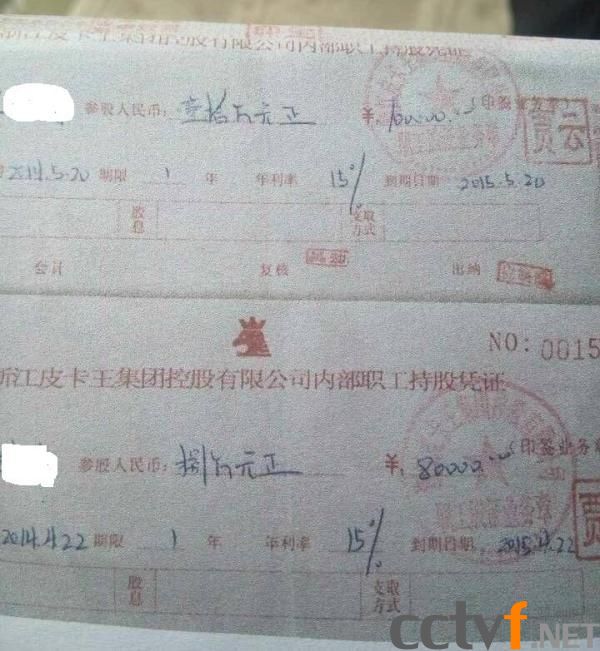 浙江皮卡王集团控股有限公司内部职工持股凭证
参股人民币: 壹拾万元正 ¥. 100000.00 (印签业务章)
贾云
2014.5.20 期限 1 年 年利率 15% 到期日期 2015.5.20
股息 支取方式
会计 复核 出纳
NO: 0015
浙江皮卡王集团控股有限公司内部职工持股凭证
参股人民币: 捌万元正 ¥. 80000.00 (印签业务章
贾
2014.4.22 期限 1 年 年利率 15% 到期日期 2015.4.22
股息 支取方式
cctvf.NET